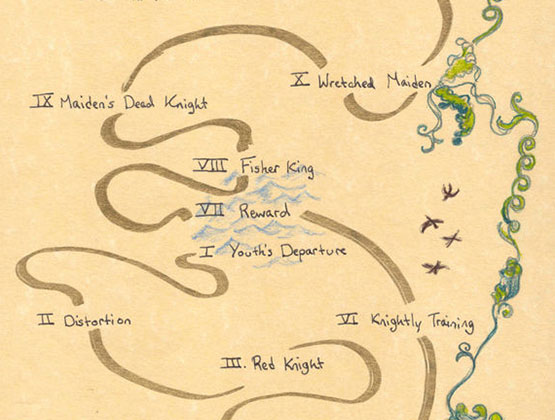 X Wretched Maiden
IX Maiden's Dead Knight
VIII Fisher King
VII Reward
I Youth's Departure
II Distortion
VI Knightly Training
III. Red Knight